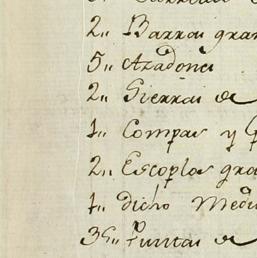 2,, Barras gran
5,, Azadones
2,, Sierras de
1,, Compas y
2,, Escoplos gra
1,, dicho Medi
36,, Puntas de